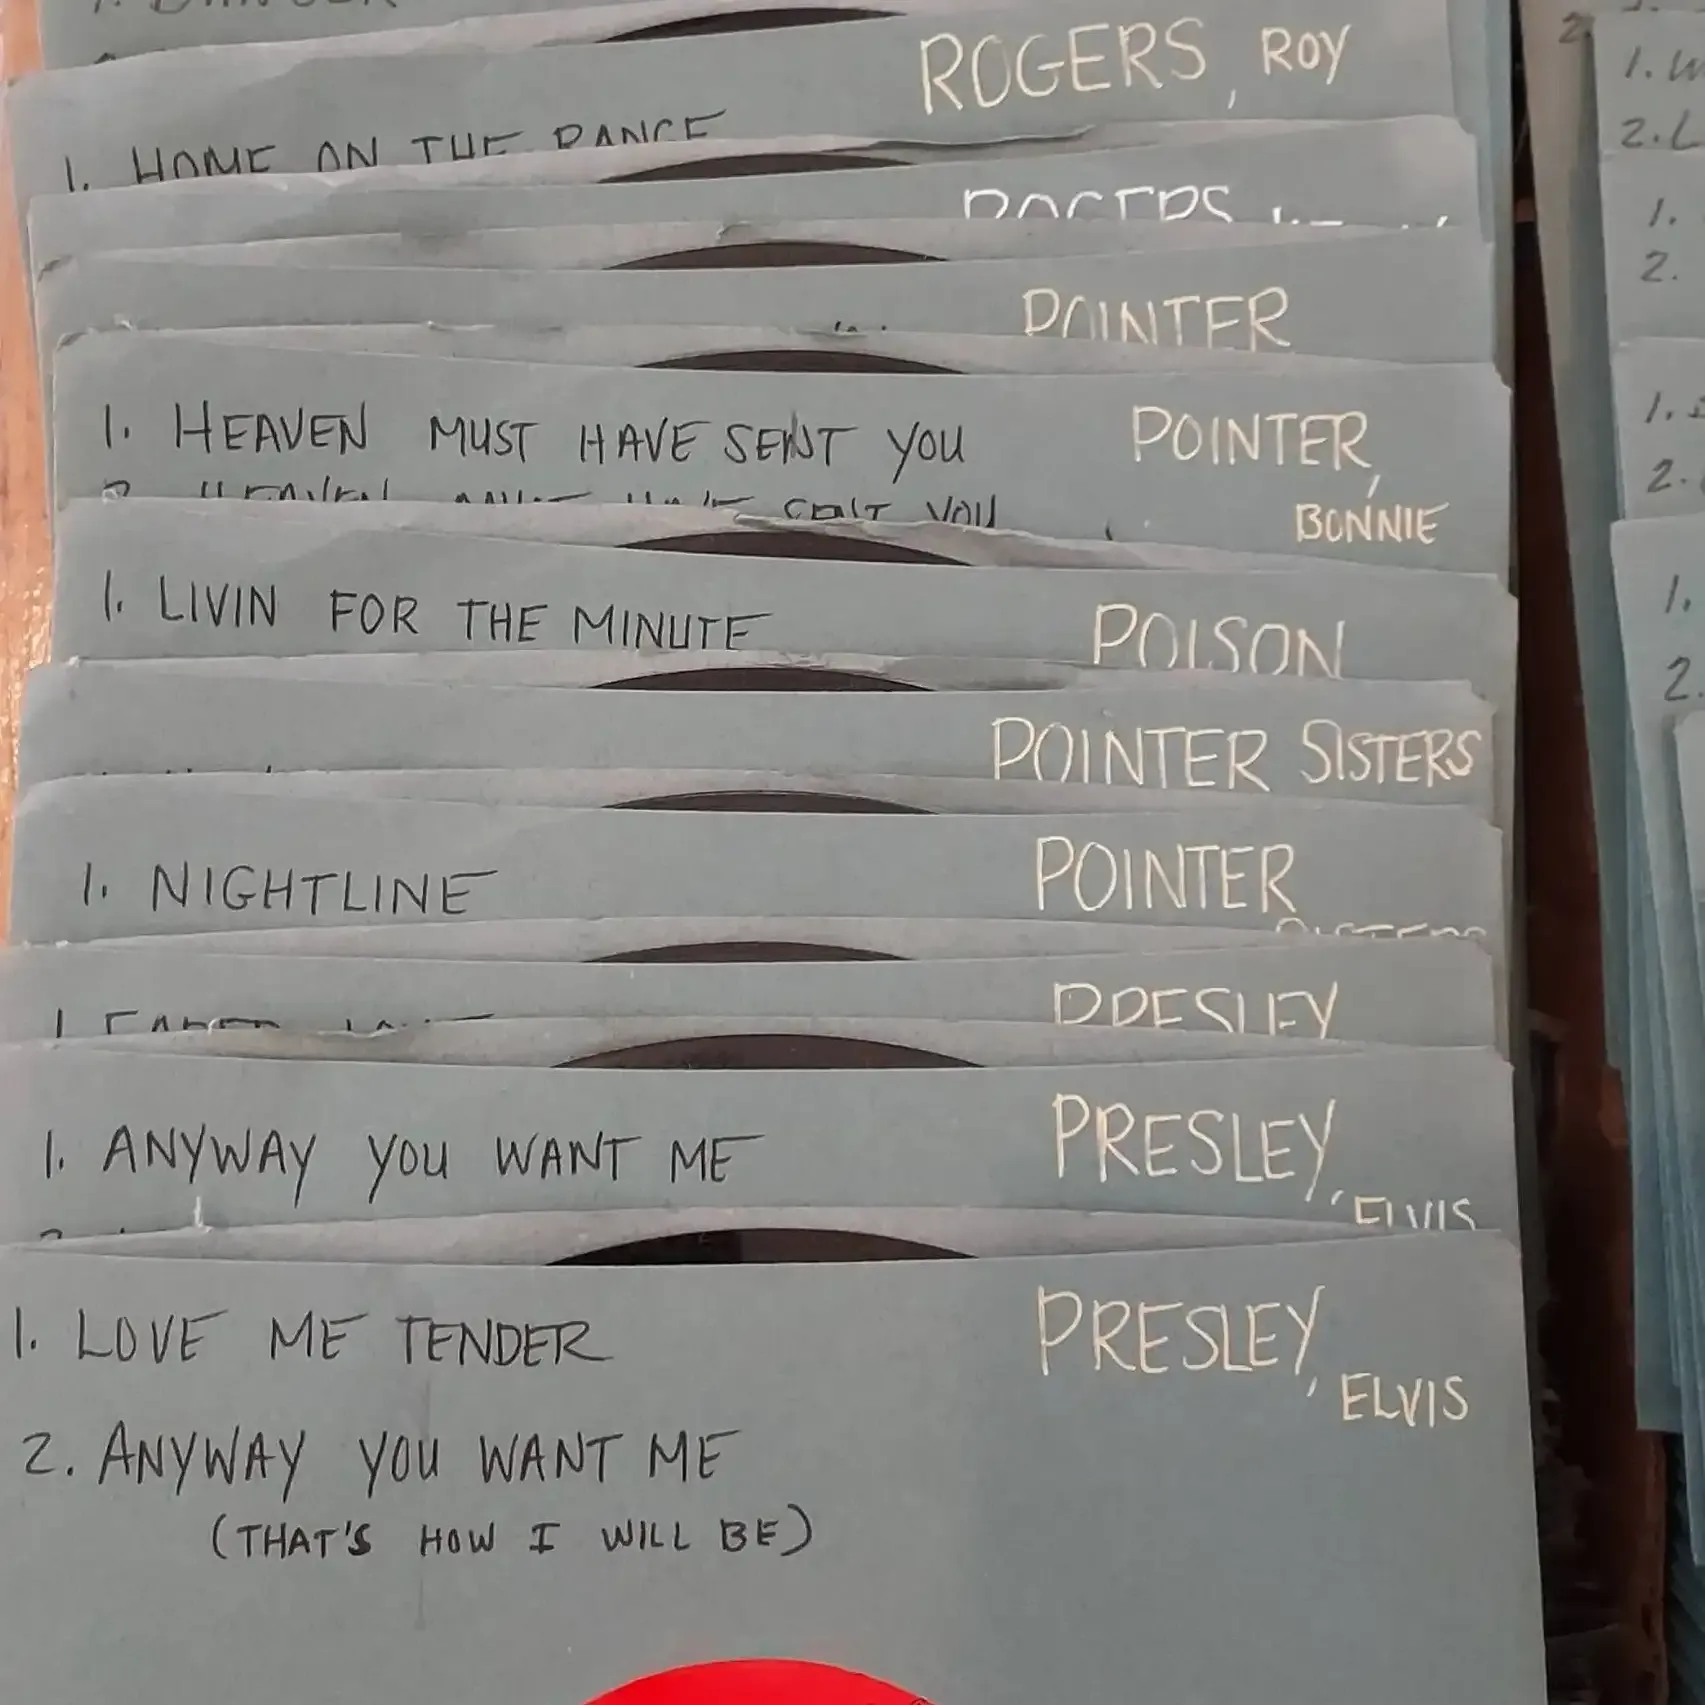 ROGERS, ROY
1. HOME ON THE RANGE
ROGERS
POINTER
1. HEAVEN MUST HAVE SENT YOU
POINTER,
BONNIE
2. HEAVEN MUST HAVE SENT YOU
1. LIVIN FOR THE MINUTE
POISON
POINTER SISTERS
1. NIGHTLINE
POINTER
SISTERS
PRESLEY
1. ANYWAY YOU WANT ME
PRESLEY,
ELVIS
1. LOVE ME TENDER
PRESLEY,
ELVIS
2. ANYWAY YOU WANT ME
(THAT'S HOW I WILL BE)
1. W
2. L
1.
2.
1.
2.
1.
2.